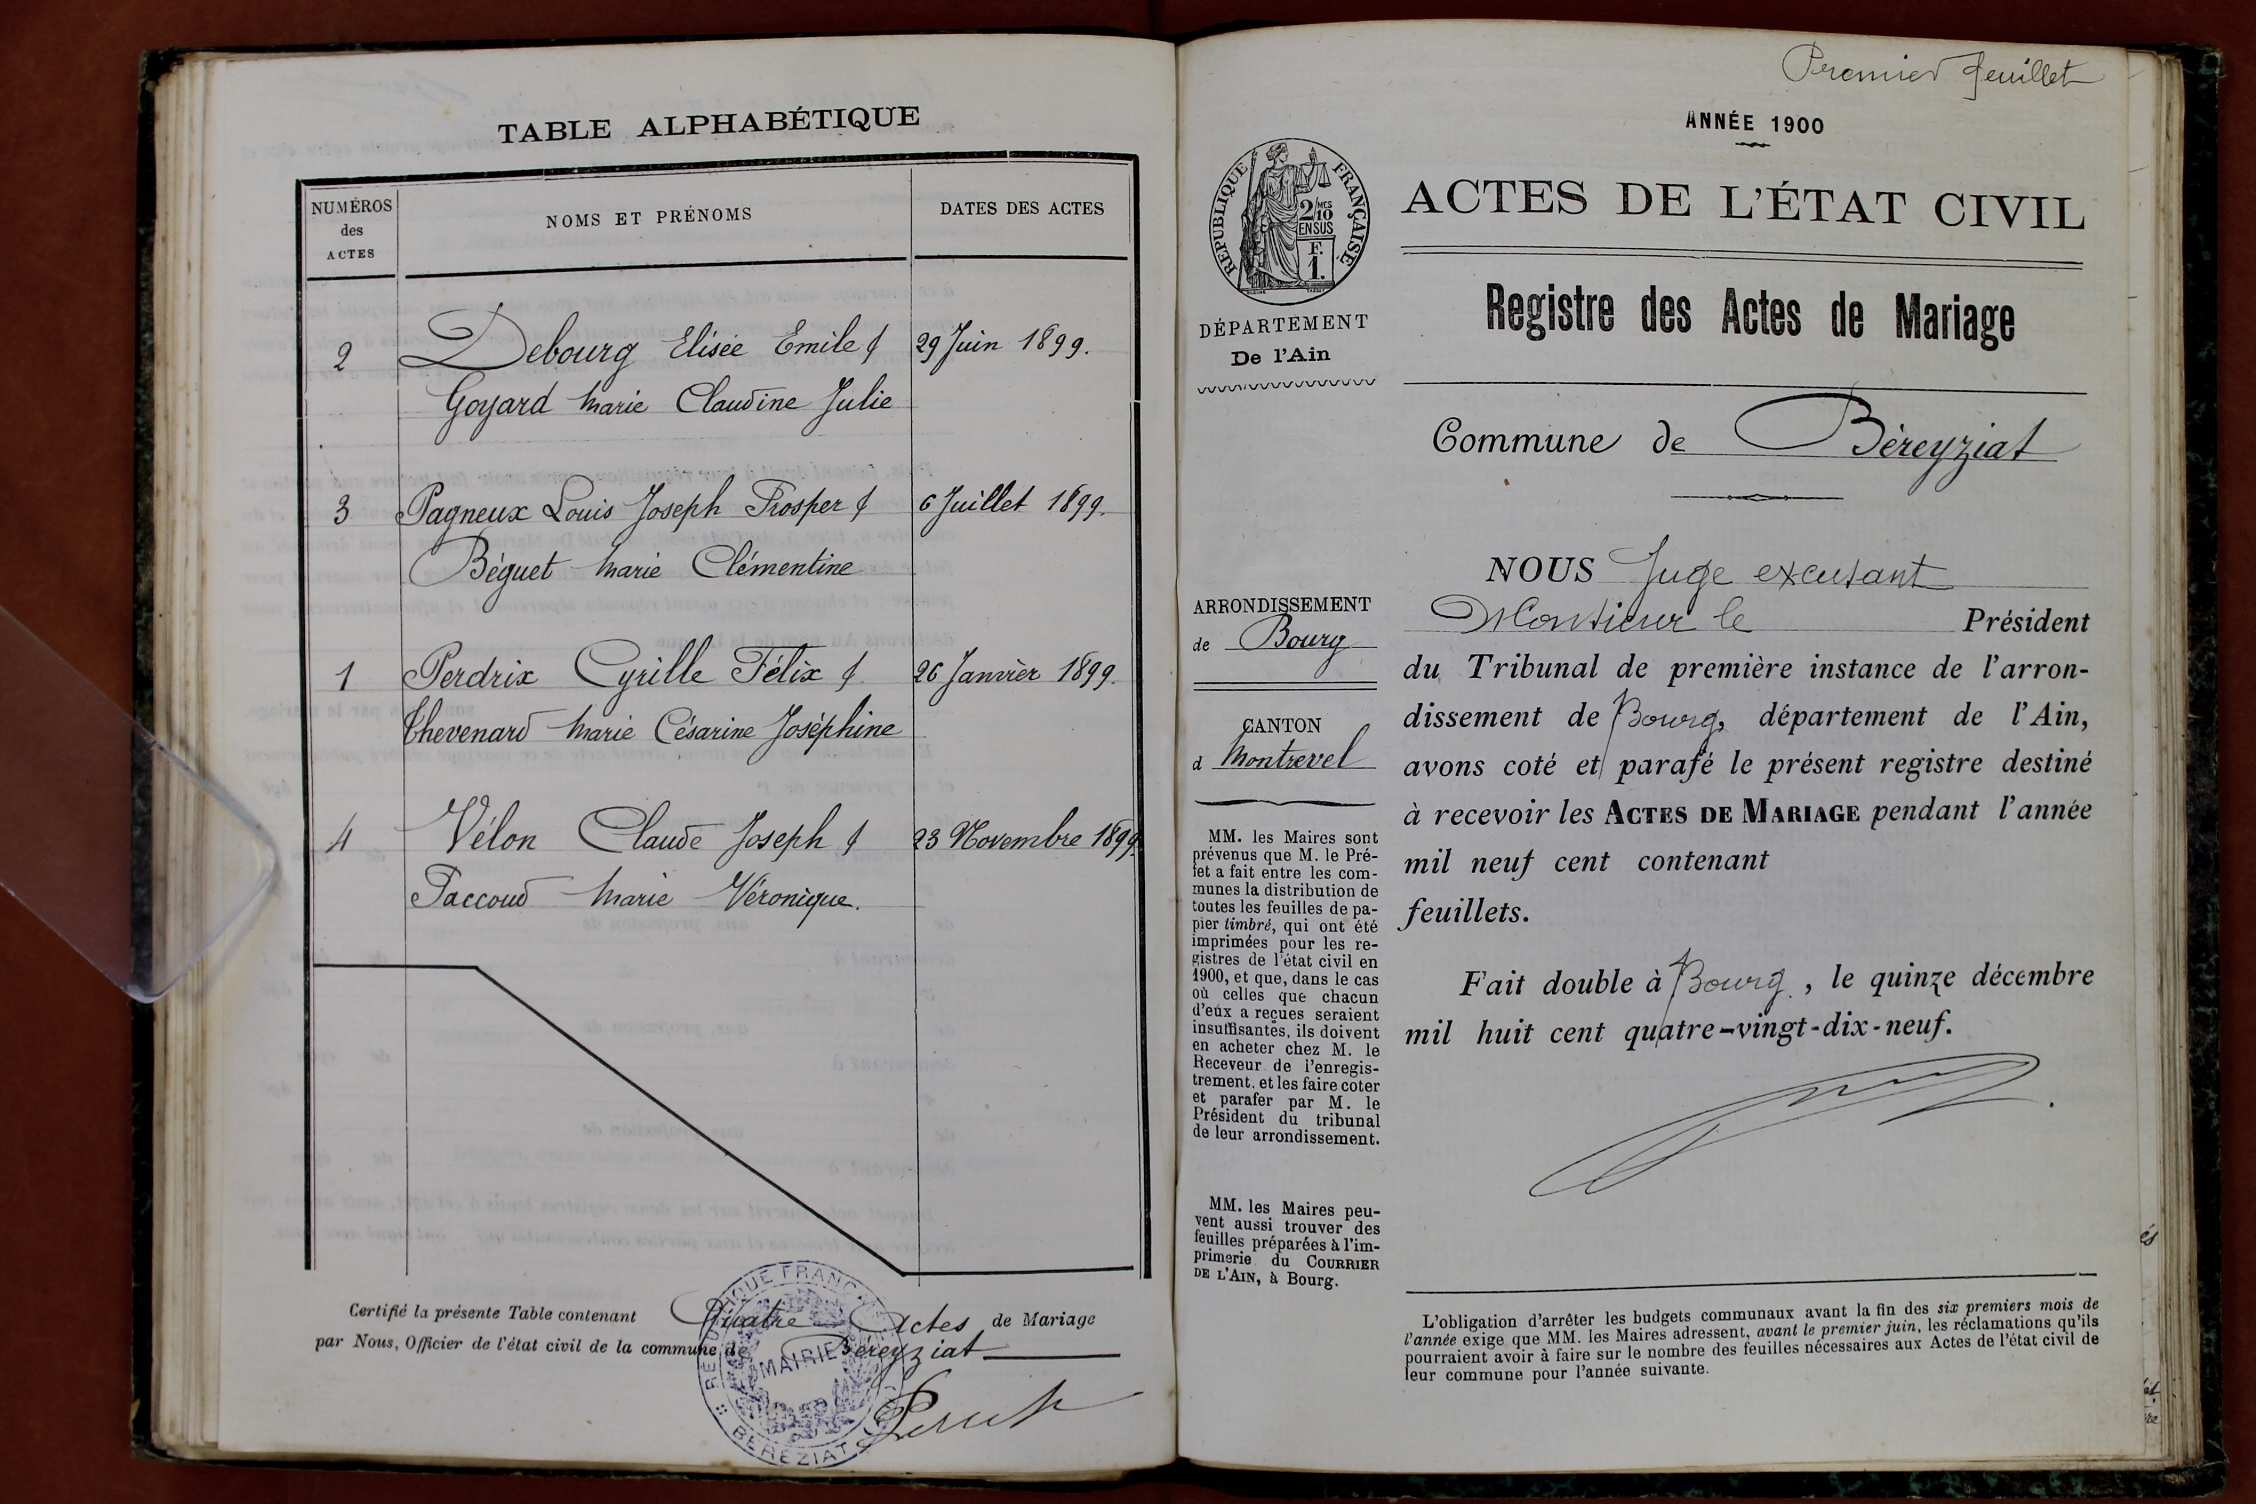 TABLE ALPHABÉTIQUE
NUMÉROS
des
ACTES
NOMS ET PRÉNOMS
DATES DES ACTES
2 Debourg Elisée Emile & 29 Juin 1899.
Goyard Marie Claudine Julie
3 Pagneux Louis Joseph Prosper & 6 Juillet 1899.
Béguet Marie Clémentine
1 Perdrix Cyrille Félix & 26 Janvier 1899.
Thevenard Marie Césarine Joséphine
4 Vélon Claude Joseph & 23 Novembre 1899.
Paccoud Marie Véronique.
Certifié la présente Table contenant Quatre Actes de Mariage
par Nous, Officier de l'état civil de la commune de Béreyziat
RÉPUBLIQUE FRANÇAISE
MAIRIE
BEREZIAT
Premier feuillet
ANNÉE 1900
RÉPUBLIQUE FRANÇAISE
2/10 MES
EN SUS
F.
1.
DÉPARTEMENT
De l'Ain
ACTES DE L'ÉTAT CIVIL
Registre des Actes de Mariage
Commune de Béreyziat
ARRONDISSEMENT
de Bourg
CANTON
d Montrevel
MM. les Maires sont
prévenus que M. le Pré-
fet a fait entre les com-
munes la distribution de
toutes les feuilles de pa-
pier timbré, qui ont été
imprimées pour les re-
gistres de l'état civil en
1900, et que, dans le cas
où celles que chacun
d'eux a reçues seraient
insuffisantes, ils doivent
en acheter chez M. le
Receveur de l'enregis-
trement, et les faire coter
et parafer par M. le
Président du tribunal
de leur arrondissement.
MM. les Maires peu-
vent aussi trouver des
feuilles préparées à l'im-
primerie du COURRIER
DE L'AIN, à Bourg.
NOUS Juge excusant
Monsieur le Président
du Tribunal de première instance de l'arron-
dissement de Bourg, département de l'Ain,
avons coté et parafé le présent registre destiné
à recevoir les ACTES DE MARIAGE pendant l'année
mil neuf cent contenant
feuillets.
Fait double à Bourg, le quinze décembre
mil huit cent quatre-vingt-dix-neuf.
L'obligation d'arrêter les budgets communaux avant la fin des six premiers mois de
l'année exige que MM. les Maires adressent, avant le premier juin, les réclamations qu'ils
pourraient avoir à faire sur le nombre des feuilles nécessaires aux Actes de l'état civil de
leur commune pour l'année suivante.